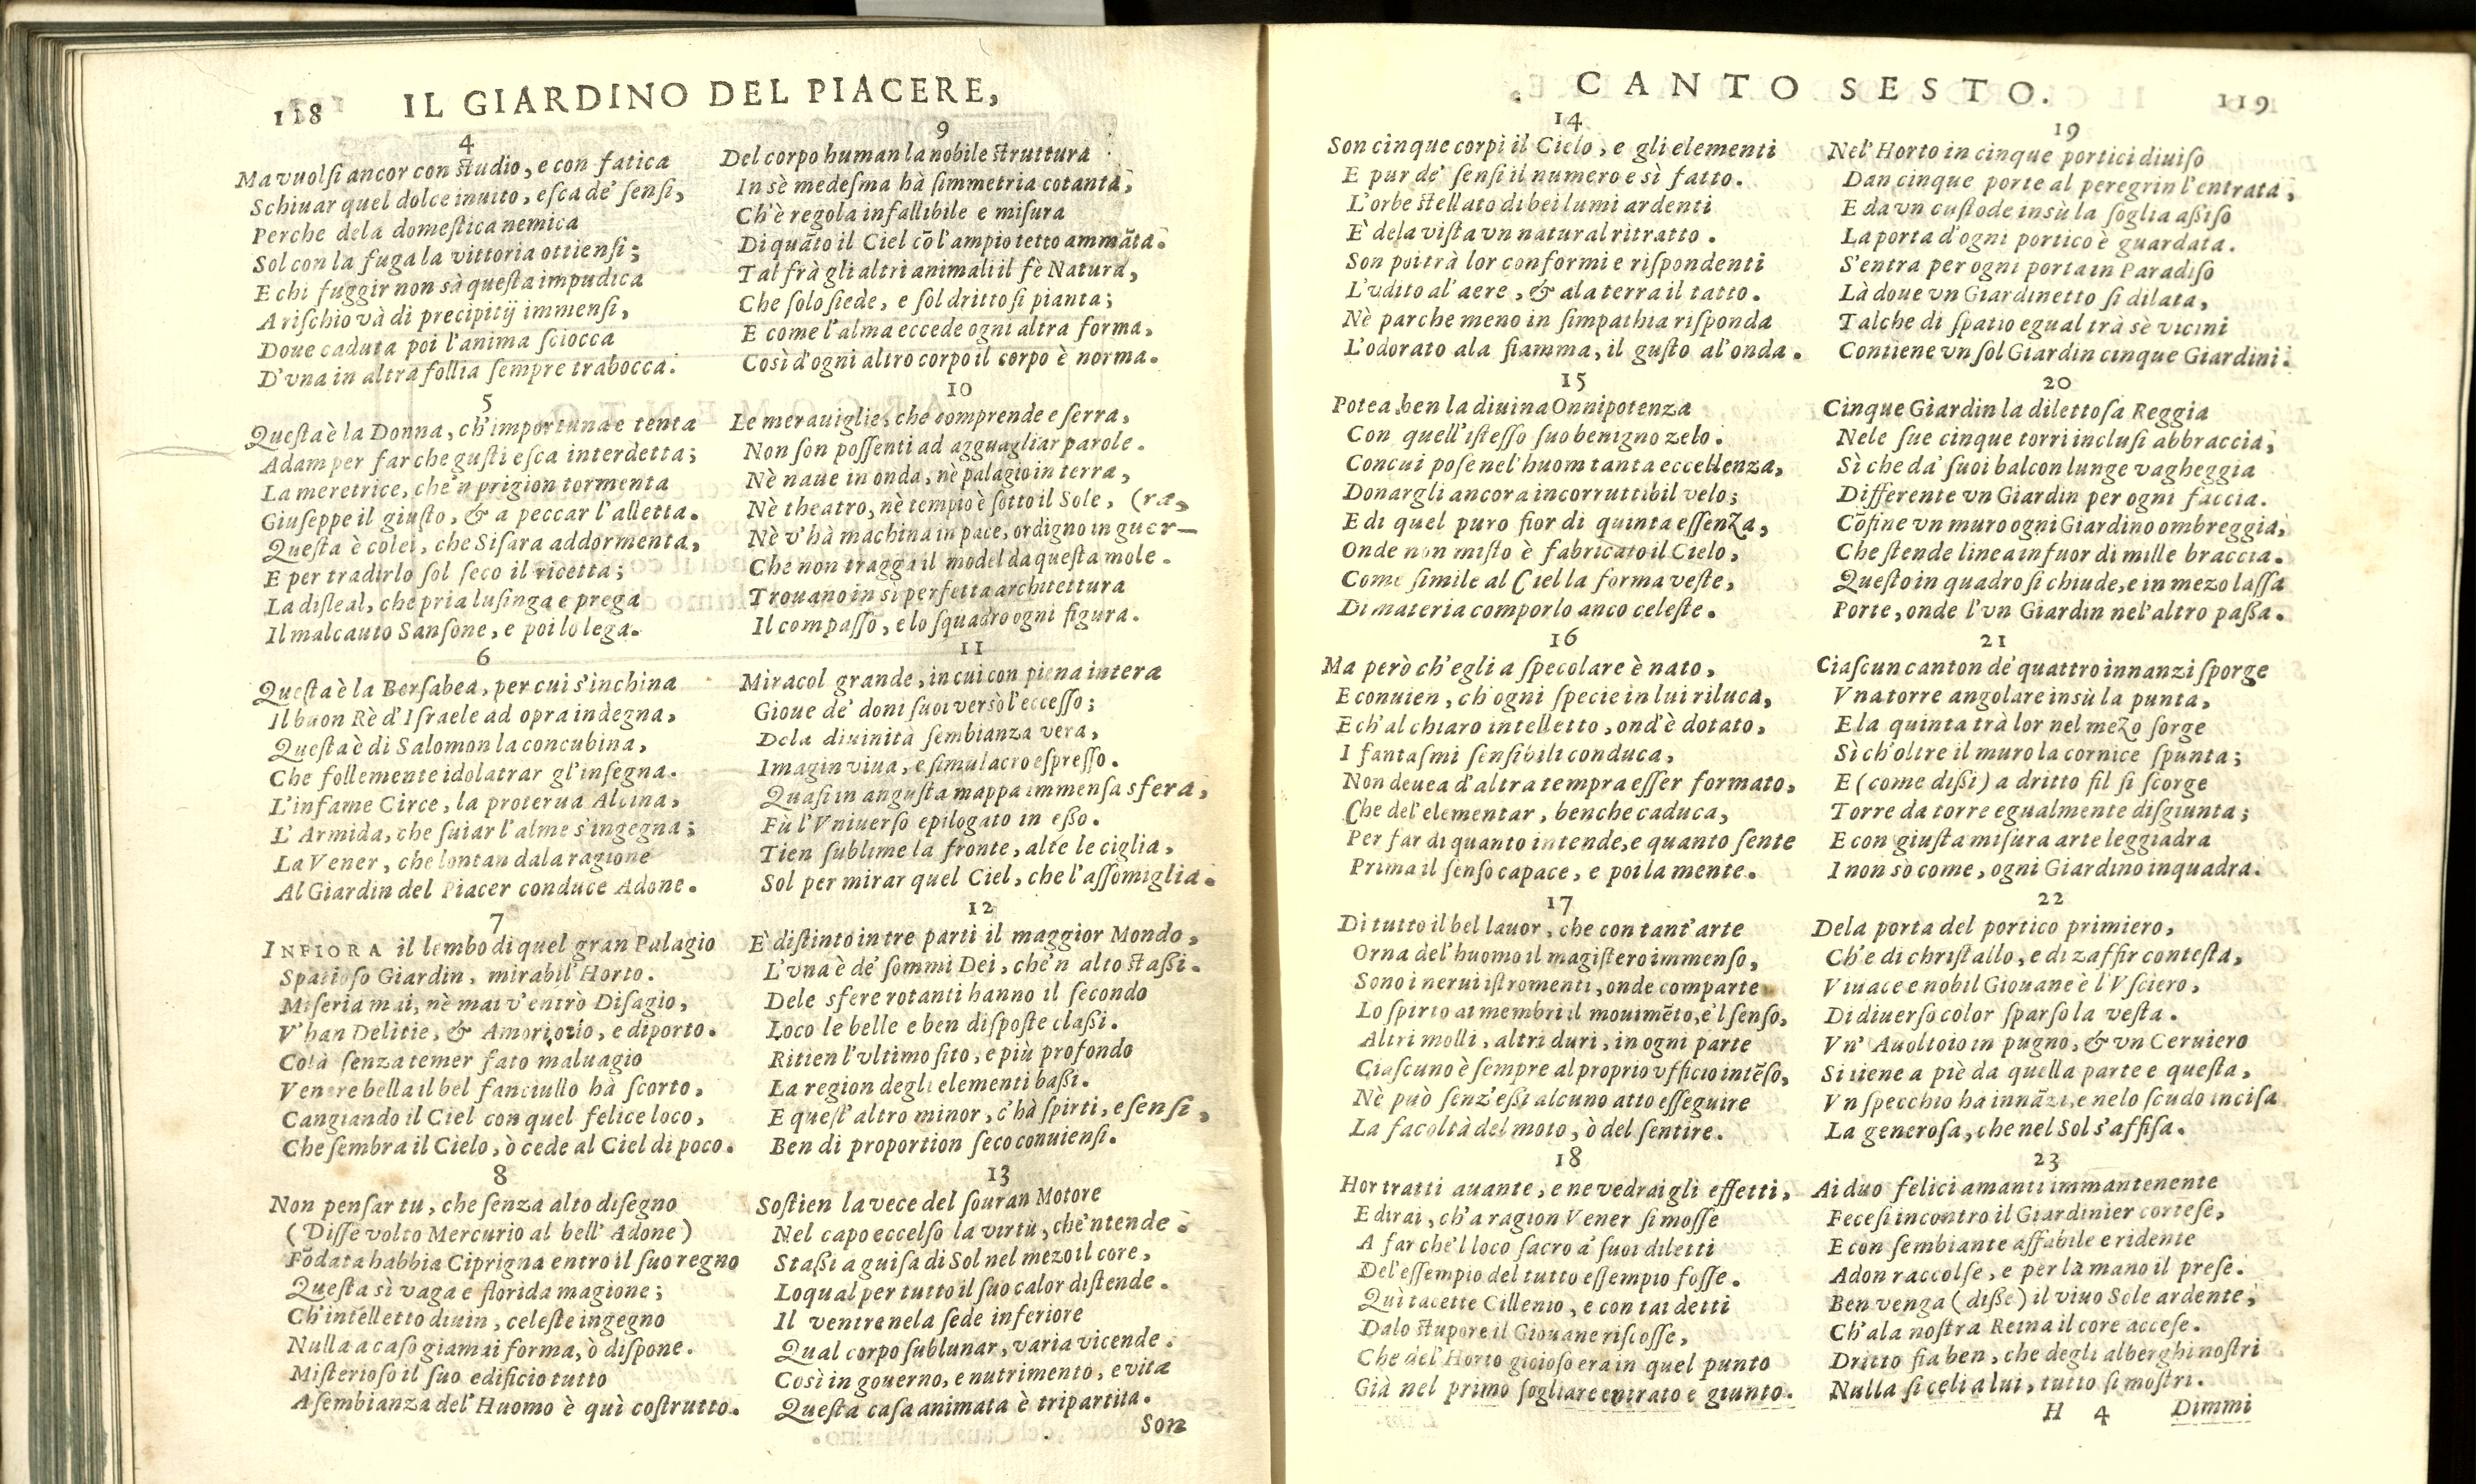 118 IL GIARDINO DEL PIACERE,
4
Ma vuolsi ancor con studio, e con fatica
Schiuar quel dolce inuito, esca de' sensi,
Perche dela domestica nemica
Sol con la fuga la vittoria ottiensi;
E chi fuggir non sà questa impudica
A rischio và di precipitij immensi,
Doue caduta poi l'anima sciocca
D'vna in altra follia sempre trabocca.
5
Questa è la Donna, ch'importuna e tenta
Adam per far che gusti esca interdetta;
La meretrice, che'n prigion tormenta
Giuseppe il giusto, & a peccar l'alletta.
Questa è colei, che Sisara addormenta,
E per tradirlo sol seco il ricetta;
La disleal, che pria lusinga e prega
Il malcauto Sansone, e poi lo lega.
6
Questa è la Bersabea, per cui s'inchina
Il buon Rè d'Israele ad opra indegna,
Questa è di Salomon la concubina,
Che follemente idolatrar gl'insegna.
L'infame Circe, la proterua Alcina,
L'Armida, che suiar l'alme s'ingegna;
La Vener, che lontan dala ragione
Al Giardin del Piacer conduce Adone.
7
INFIORA il lembo di quel gran Palagio
Spatioso Giardin, mirabil'Horto.
Miseria mai, nè mai v'entrò Disagio,
V'han Delitie, & Amori otio, e diporto.
Colà senza temer fato maluagio
Venere bella il bel fanciullo hà scorto,
Cangiando il Ciel con quel felice loco,
Che sembra il Cielo, ò cede al Ciel di poco.
8
Non pensar tu, che senza alto disegno
(Disse volto Mercurio al bell'Adone)
Fōdata habbia Ciprigna entro il suo regno
Questa sì vaga e florida magione;
Ch'intelletto diuin, celeste ingegno
Nulla a caso giamai forma, ò dispone.
Misterioso il suo edificio tutto
A sembianza del'Huomo è quì costrutto.
9
Del corpo human la nobile struttura
In sè medesma hà simmetria cotanta,
Ch'è regola infallibile e misura
Di quāto il Ciel cō l'ampio tetto ammāta.
Tal frà gli altri animali il fè Natura,
Che solo siede, e sol dritto si pianta;
E come l'alma eccede ogni altra forma,
Così d'ogni altro corpo il corpo è norma.
10
Le merauiglie, che comprende e serra,
Non son possenti ad agguagliar parole.
Nè naue in onda, nè palagio in terra,
Nè theatro, nè tempio è sotto il Sole, (ra,
Nè v'hà machina in pace, ordigno in guer-
Che non tragga il model da questa mole.
Trouano in sì perfetta architettura
Il compasso, e lo squadro ogni figura.
11
Miracol grande, in cui con piena intera
Gioue de' doni suoi versò l'eccesso;
Dela diuinità sembianza vera,
Imagin viua, e simulacro espresso.
Quasi in angusta mappa immensa sfera,
Fù l'Vniuerso epilogato in esso.
Tien sublime la fronte, alte le ciglia,
Sol per mirar quel Ciel, che l'assomiglia.
12
È distinto in tre parti il maggior Mondo,
L'vna è de' sommi Dei, che'n alto stassi.
Dele sfere rotanti hanno il secondo
Loco le belle e ben disposte classi.
Ritien l'vltimo sito, e più profondo
La region degli elementi bassi.
E quest'altro minor, c'hà spirti, e sensi,
Ben di proportion seco conuiensi.
13
Sostien la vece del souran Motore
Nel capo eccelso la virtù, che'ntende.
Stassi a guisa di Sol nel mezo il core,
Loqual per tutto il suo calor distende.
Il ventre nela sede inferiore
Qual corpo sublunar, varia vicende.
Così in gouerno, e nutrimento, e vita
Questa casa animata è tripartita.
Son
CANTO SESTO. 119
14
Son cinque corpi il Cielo, e gli elementi
E pur de' sensi il numero e sì fatto.
L'orbe stellato di bei lumi ardenti
È dela vista vn natural ritratto.
Son poi trà lor conformi e rispondenti
L'vdito al'aere, & ala terra il tatto.
Nè par che meno in simpathia risponda
L'odorato ala fiamma, il gusto al'onda.
15
Potea ben la diuina Onnipotenza
Con quell'istesso suo benigno zelo.
Con cui pose nel'huom tanta eccellenza,
Donargli ancora incorruttibil velo;
E di quel puro fior di quinta essenza,
Onde non misto è fabricato il Cielo,
Come simile al Ciel la forma veste,
Di materia comporlo anco celeste.
16
Ma però ch'egli a specolare è nato,
E conuien, ch'ogni specie in lui riluca,
E ch'al chiaro intelletto, ond'è dotato,
I fantasmi sensibili conduca,
Non deuea d'altra tempra esser formato,
Che del'elementar, benche caduca,
Per far di quanto intende, e quanto sente
Prima il senso capace, e poi la mente.
17
Di tutto il bel lauor, che con tant'arte
Orna del'huomo il magistero immenso,
Sono i nerui istromenti, onde comparte
Lo spirto ai membri il mouimēto, e'l senso,
Altri molli, altri duri, in ogni parte
Ciascuno è sempre al proprio vfficio intēso,
Nè può senz'essi alcuno atto esseguire
La facoltà del moto, ò del sentire.
18
Hor tratti auante, e ne vedrai gli effetti,
E dirai, ch'a ragion Vener si mosse
A far che'l loco sacro a' suoi diletti
Del'essempio del tutto essempio fosse.
Quì tacette Cillenio, e con tai detti
Dalo stupore il Giouane riscosse,
Che del'Horto gioioso era in quel punto
Già nel primo sogliare entrato e giunto.
19
Nel'Horto in cinque portici diuiso
Dan cinque porte al peregrin l'entrata,
E da vn custode in sù la soglia assiso
La porta d'ogni portico è guardata.
S'entra per ogni porta in Paradiso
Là doue vn Giardinetto si dilata,
Talche di spatio egual trà sè vicini
Contiene vn sol Giardin cinque Giardini.
20
Cinque Giardin la dilettosa Reggia
Nele sue cinque torri inclusi abbraccia,
Sì che da' suoi balcon lunge vagheggia
Differente vn Giardin per ogni faccia.
Cōfine vn muro ogni Giardino ombreggia,
Che stende linea in fuor di mille braccia.
Questo in quadro si chiude, e in mezo lassa
Porte, onde l'vn Giardin nel'altro passa.
21
Ciascun canton de' quattro innanzi sporge
Vna torre angolare in sù la punta,
E la quinta trà lor nel mezo sorge
Sì ch'oltre il muro la cornice spunta;
E (come dissi) a dritto fil si scorge
Torre da torre egualmente disgiunta;
E con giusta misura arte leggiadra
I non sò come, ogni Giardino inquadra.
22
Dela porta del portico primiero,
Ch'e di christallo, e di zaffir contesta,
Viuace e nobil Giouane è l'Vsciero,
Di diuerso color sparso la vesta.
Vn'Auoltoio in pugno, & vn Ceruiero
Si tiene a piè da quella parte e questa,
Vn specchio ha innāzi, e nelo scudo incisa
La generosa, che nel Sol s'affisa.
23
Ai duo felici amanti immantenente
Fecesi incontro il Giardinier cortese,
E con sembiante affabile e ridente
Adon raccolse, e per la mano il prese.
Ben venga (disse) il viuo Sole ardente,
Ch'ala nostra Reina il core accese.
Dritto fia ben, che degli alberghi nostri
Nulla si celi a lui, tutto si mostri.
H 4 Dimmi